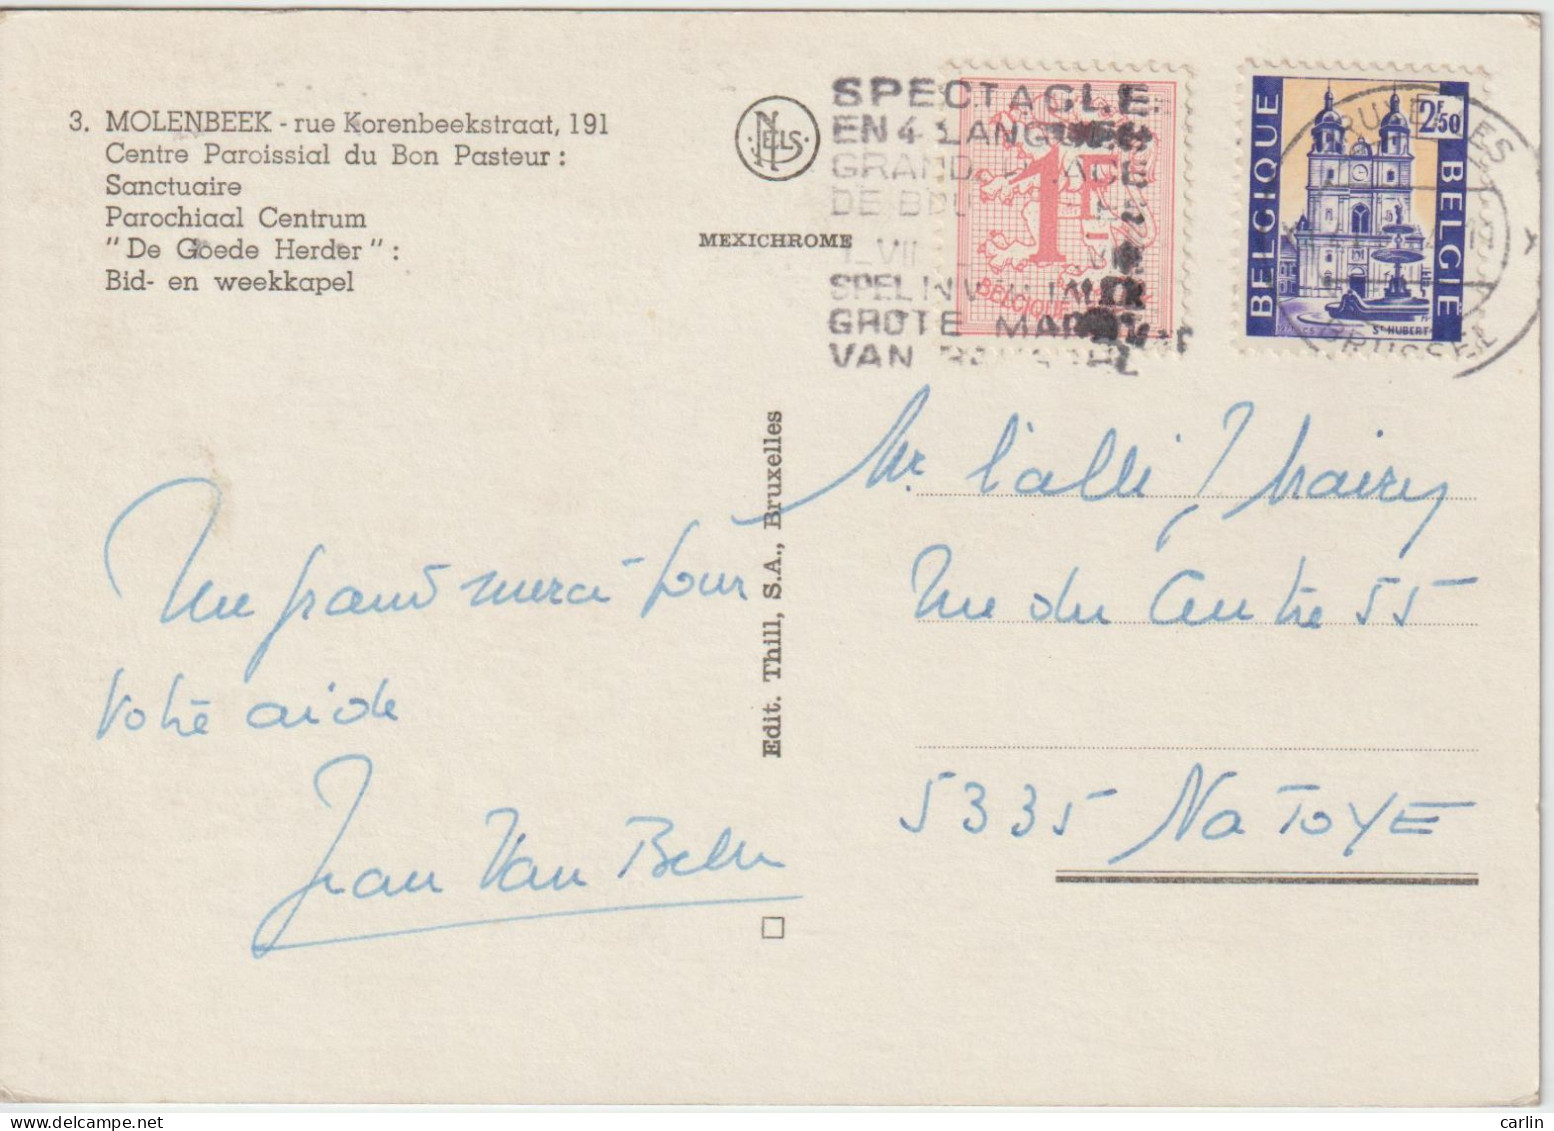 3. MOLENBEEK - rue Korenbeekstraat, 191
Centre Paroissial du Bon Pasteur :
Sanctuaire
Parochiaal Centrum
"De Goede Herder" :
Bid- en weekkapel
NELS
MEXICHROME
SPECTACLE
EN 4 LANGUES
GRAND PLACE
DE
VII
SPEL IN
GROTE MARKT
VAN
1F
BELGIQUE
BELGIQUE
2F50
BELGIË
St HUBERT
BRUXELLES
BRUSSEL
Edit. Thill, S.A., Bruxelles
Un grand merci pour
votre aide
Jean Van
Mr l'abbé
Rue du Centre 55
5335 NATOYE
carlin